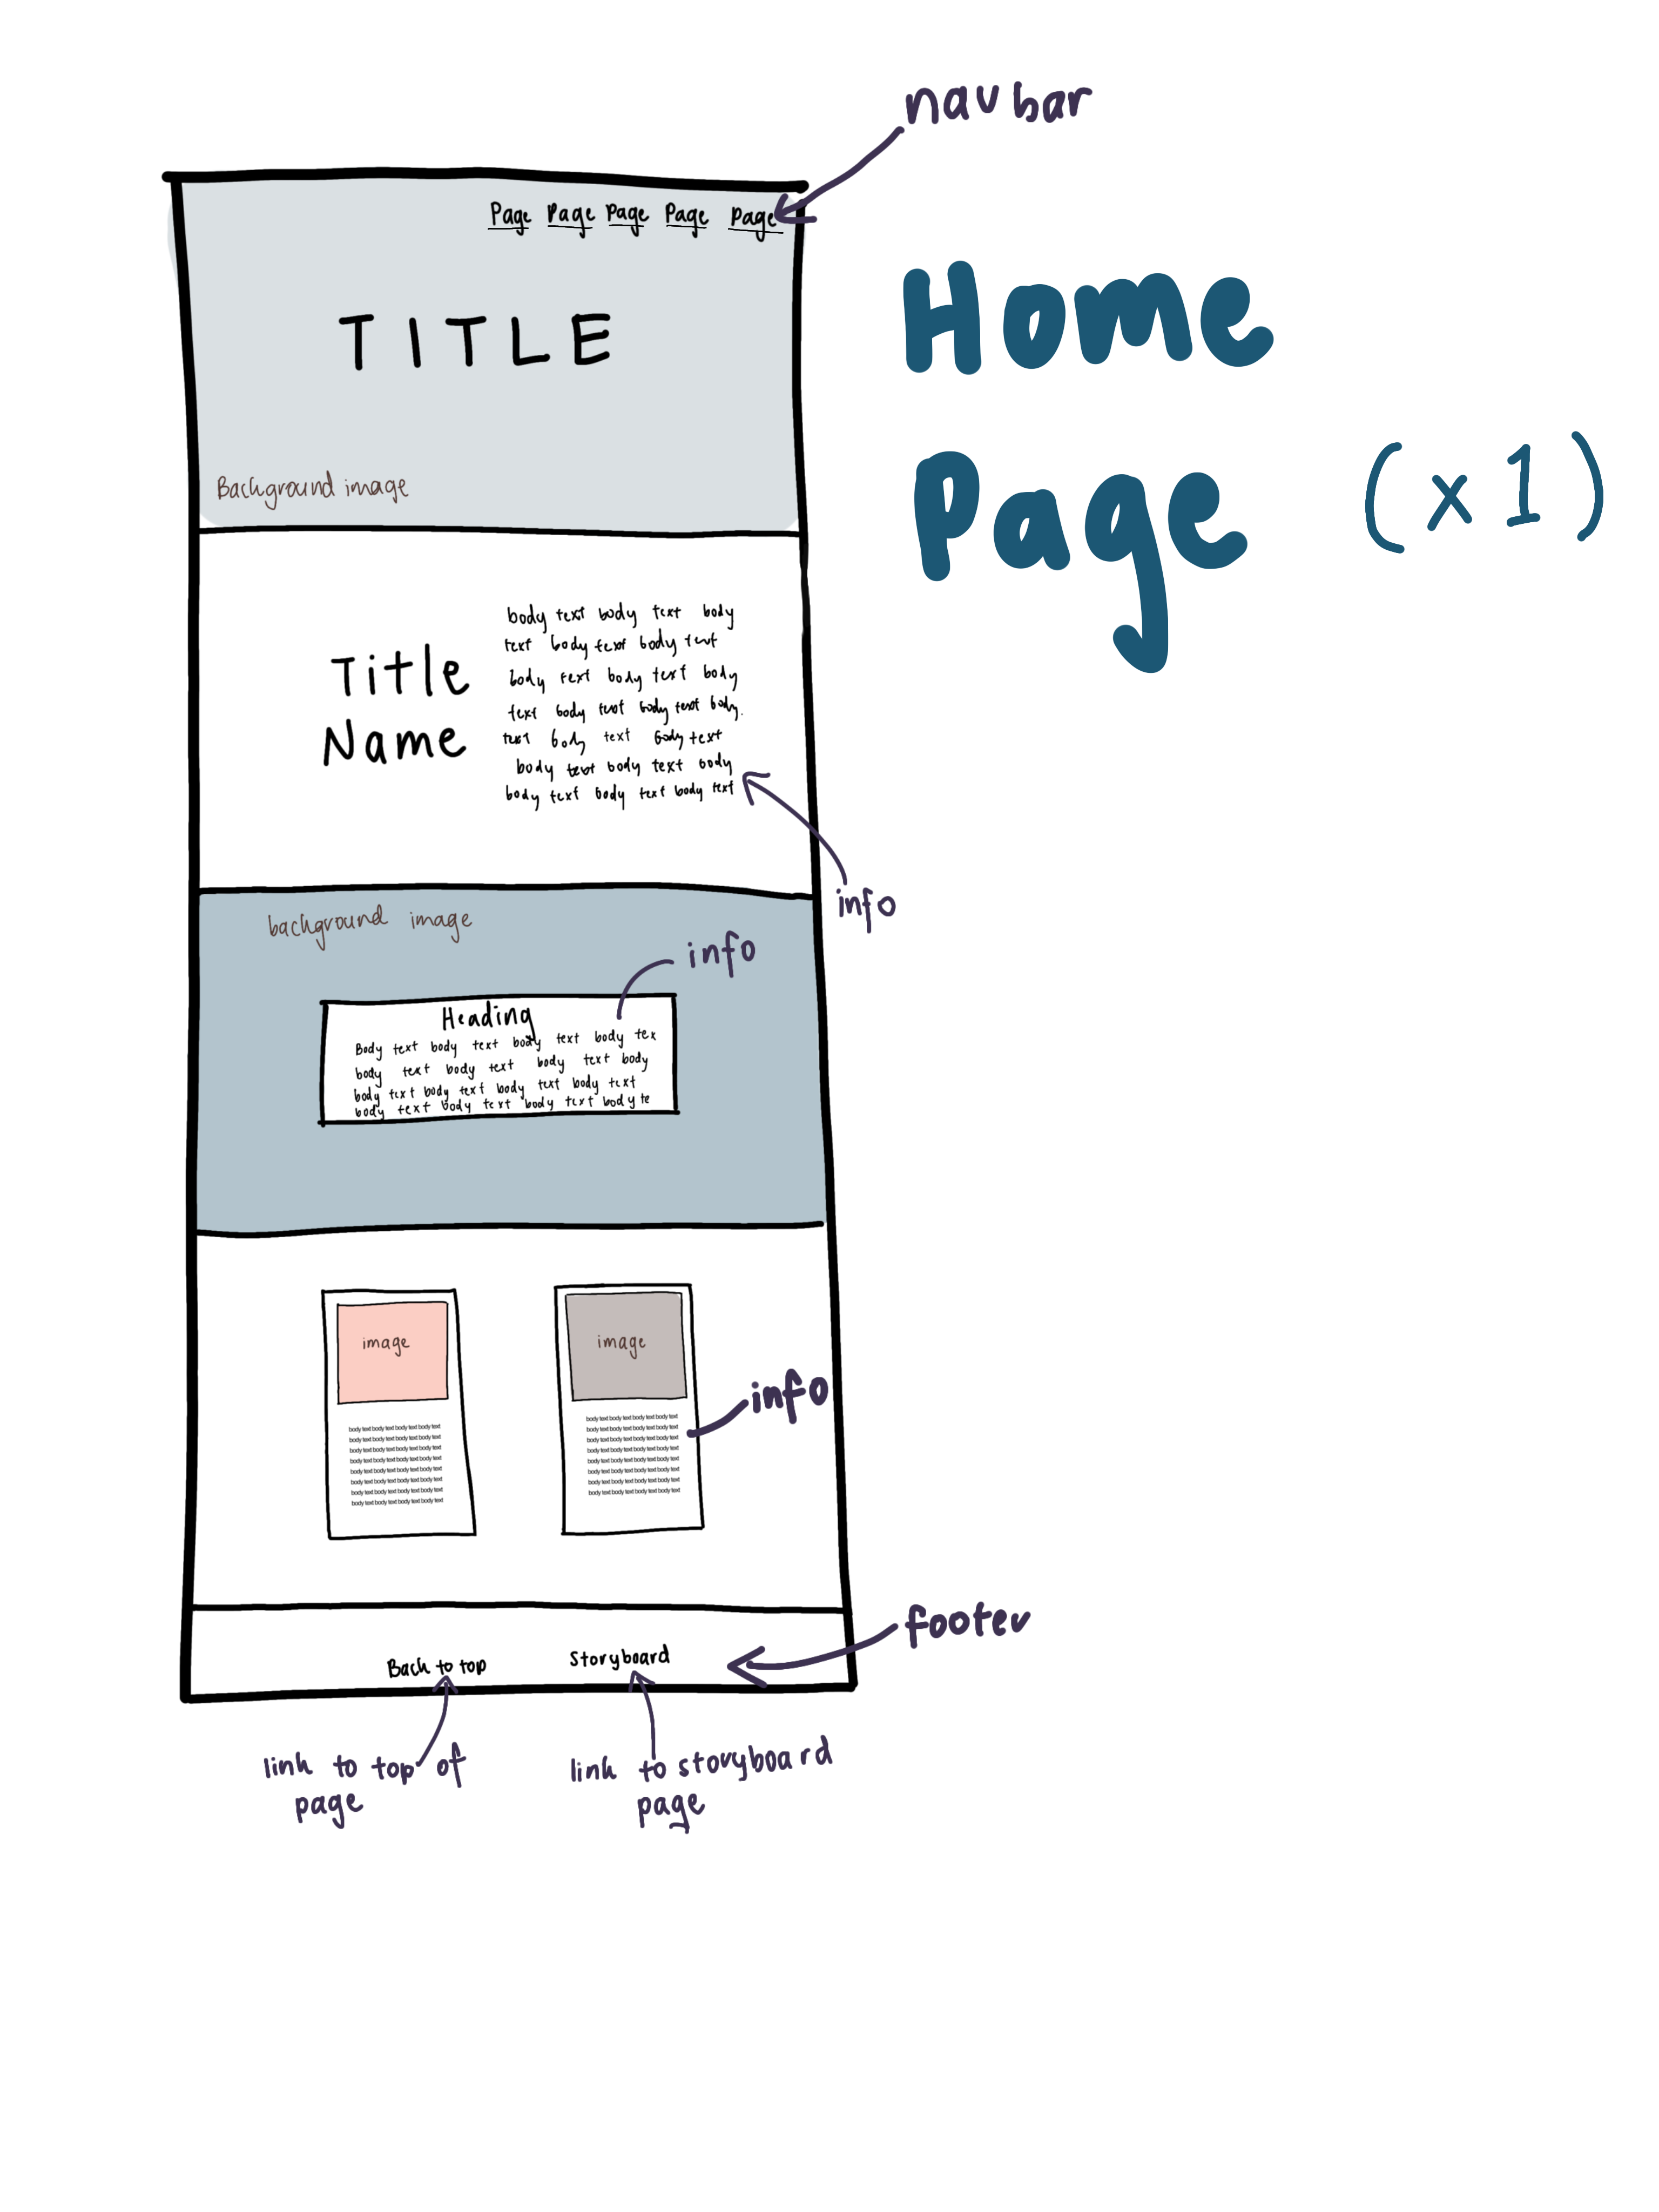 navbar
Page Page Page Page Page
TITLE
Background image
Home
Page (x1)
Title
Name
body text body text body
text body text body text
body text body text body
text body text body text body.
text body text body text
body text body text body
body text body text body text
info
background image
info
Heading
Body text body text body text body tex
body text body text body text body
body text body text body text body text
body text body text body text body te
image
body text body text body text body text
body text body text body text body text
body text body text body text body text
body text body text body text body text
body text body text body text body text
body text body text body text body text
body text body text body text body text
body text body text body text body text
image
body text body text body text body text
body text body text body text body text
body text body text body text body text
body text body text body text body text
body text body text body text body text
body text body text body text body text
body text body text body text body text
body text body text body text body text
info
footer
Back to top
Storyboard
link to top of
page
link to storyboard
page